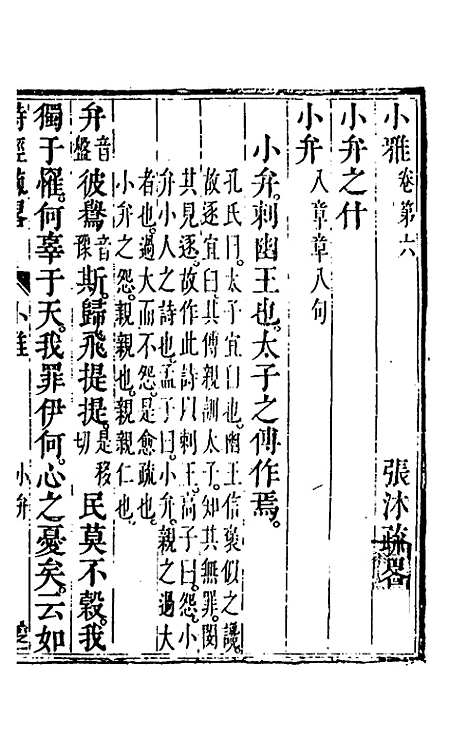 小雅卷第六 張沐疏畧
小弁之什
小弁八章章八句
小弁刺幽王也。太子之傅作焉。
孔氏曰。太子宜臼也。幽王信褒姒之讒。
故逐宜臼。其傅親訓太子。知其無罪。閔
其見逐。故作此詩以刺王。高子曰。怨。小
弁小人之詩也。孟子曰。小弁。親之過大
者也。過大而不怨。是愈疏也。
小弁之怨。親親也。親親仁也。
弁音盤彼鸒音豫斯。歸飛提提。是移切民莫不穀。我
獨于罹。何辜于天。我罪伊何。心之憂矣。云如
詩經疏畧 小雅 小弁